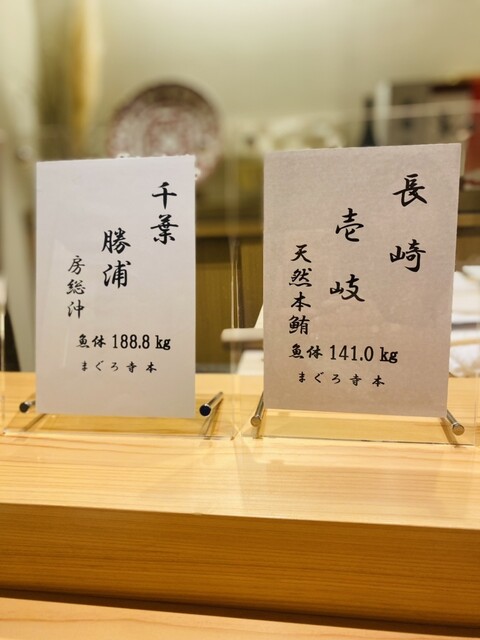 千葉
勝浦
房総沖
魚体 188.8 kg
まぐろ寺本
長崎
壱岐
天然本鮪
魚体 141.0 kg
まぐろ寺本